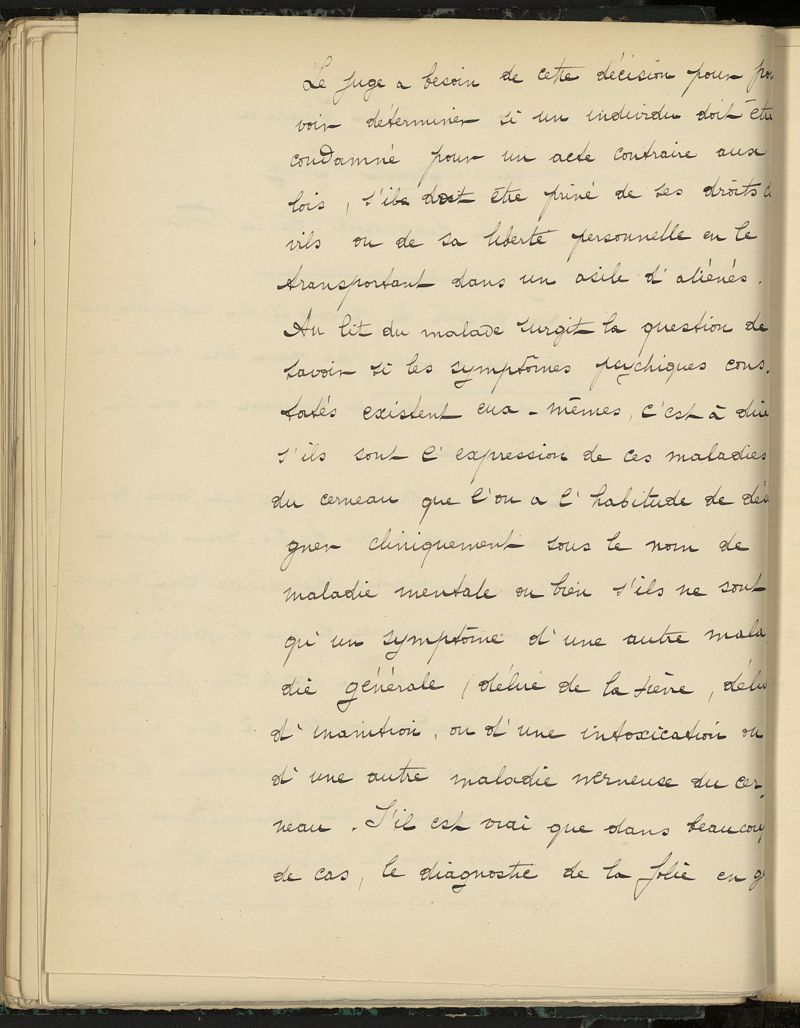 Le juge a besoin de cette décision pour pou
voir déterminer si un individu doit être
condamné pour un acte contraire aux
lois, s'ils doit être privé de ses droits ci
vils ou de sa liberté personnelle en le
transportant dans un asile d'aliénés.
Au lit du malade surgit la question de
savoir si les symptômes psychiques cons-
tatés existent eux-mêmes, c'est à dire
s'ils sont l'expression de ces maladies
du cerveau que l'on a l'habitude de dési
gner cliniquement sous le nom de
maladie mentale ou bien s'ils ne sont
qu'un symptôme d'une autre mala-
die générale (délire de la fièvre, délire
d'inanition, ou d'une intoxication ou
d'une autre maladie nerveuse du cer-
veau. S'il est vrai que dans beaucoup
de cas, le diagnostic de la folie en g